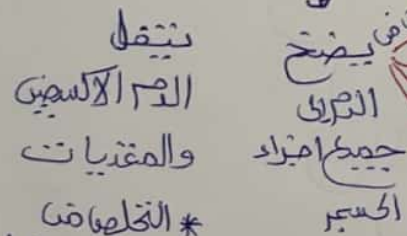 يضخ
الدم إلى
جميع اجزاء
الجسم
تنتقل
الدم الاكسجين
والمغذيات
* التخلص من